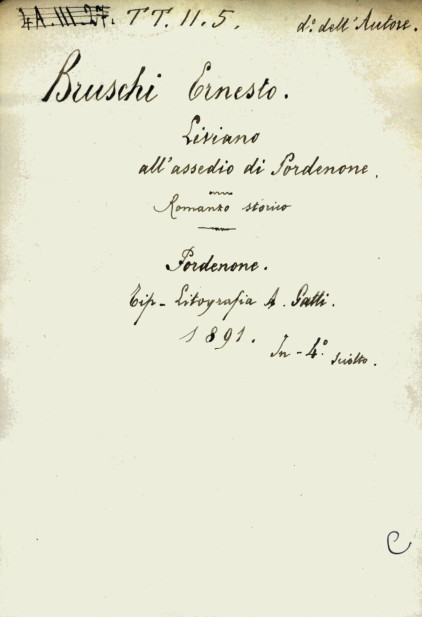 4A.III.27. TT.II.5. d.° dell'Autore.
Bruschi Ernesto.
Liviano
all'assedio di Pordenone.
Romanzo storico
Pordenone.
Tip-Litografia A. Gatti.
1891.
In-4° sciolto.
C